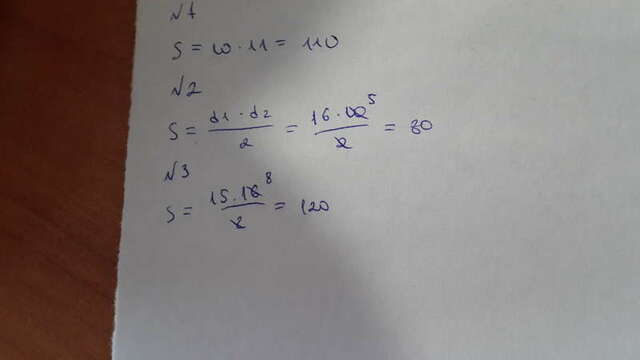 №1
S = 10 · 11 = 110
№2
S = d1 · d2 / 2 = 16 · 10 5 / 2 = 80
№3
S = 15 · 16 8 / 2 = 120